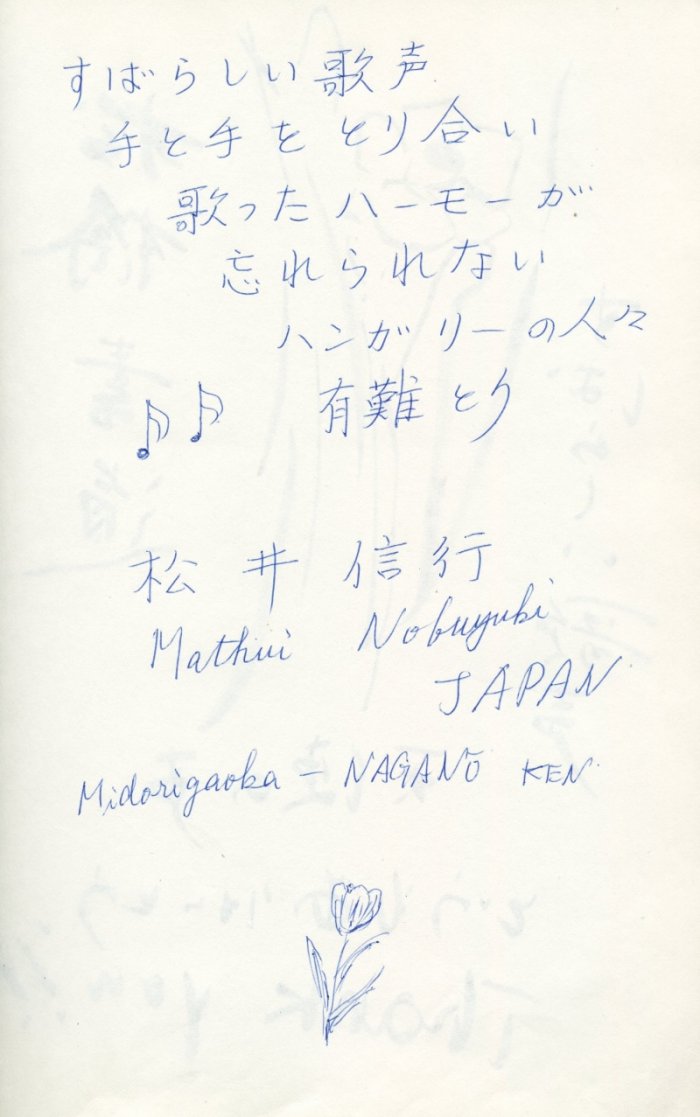 すばらしい歌声
手と手をとり合い
歌ったハーモーが
忘れられない
ハンガリーの人々
有難とり
松井 信行
Mathui Nobuyuki
JAPAN
Midorigaoka - NAGANO KEN